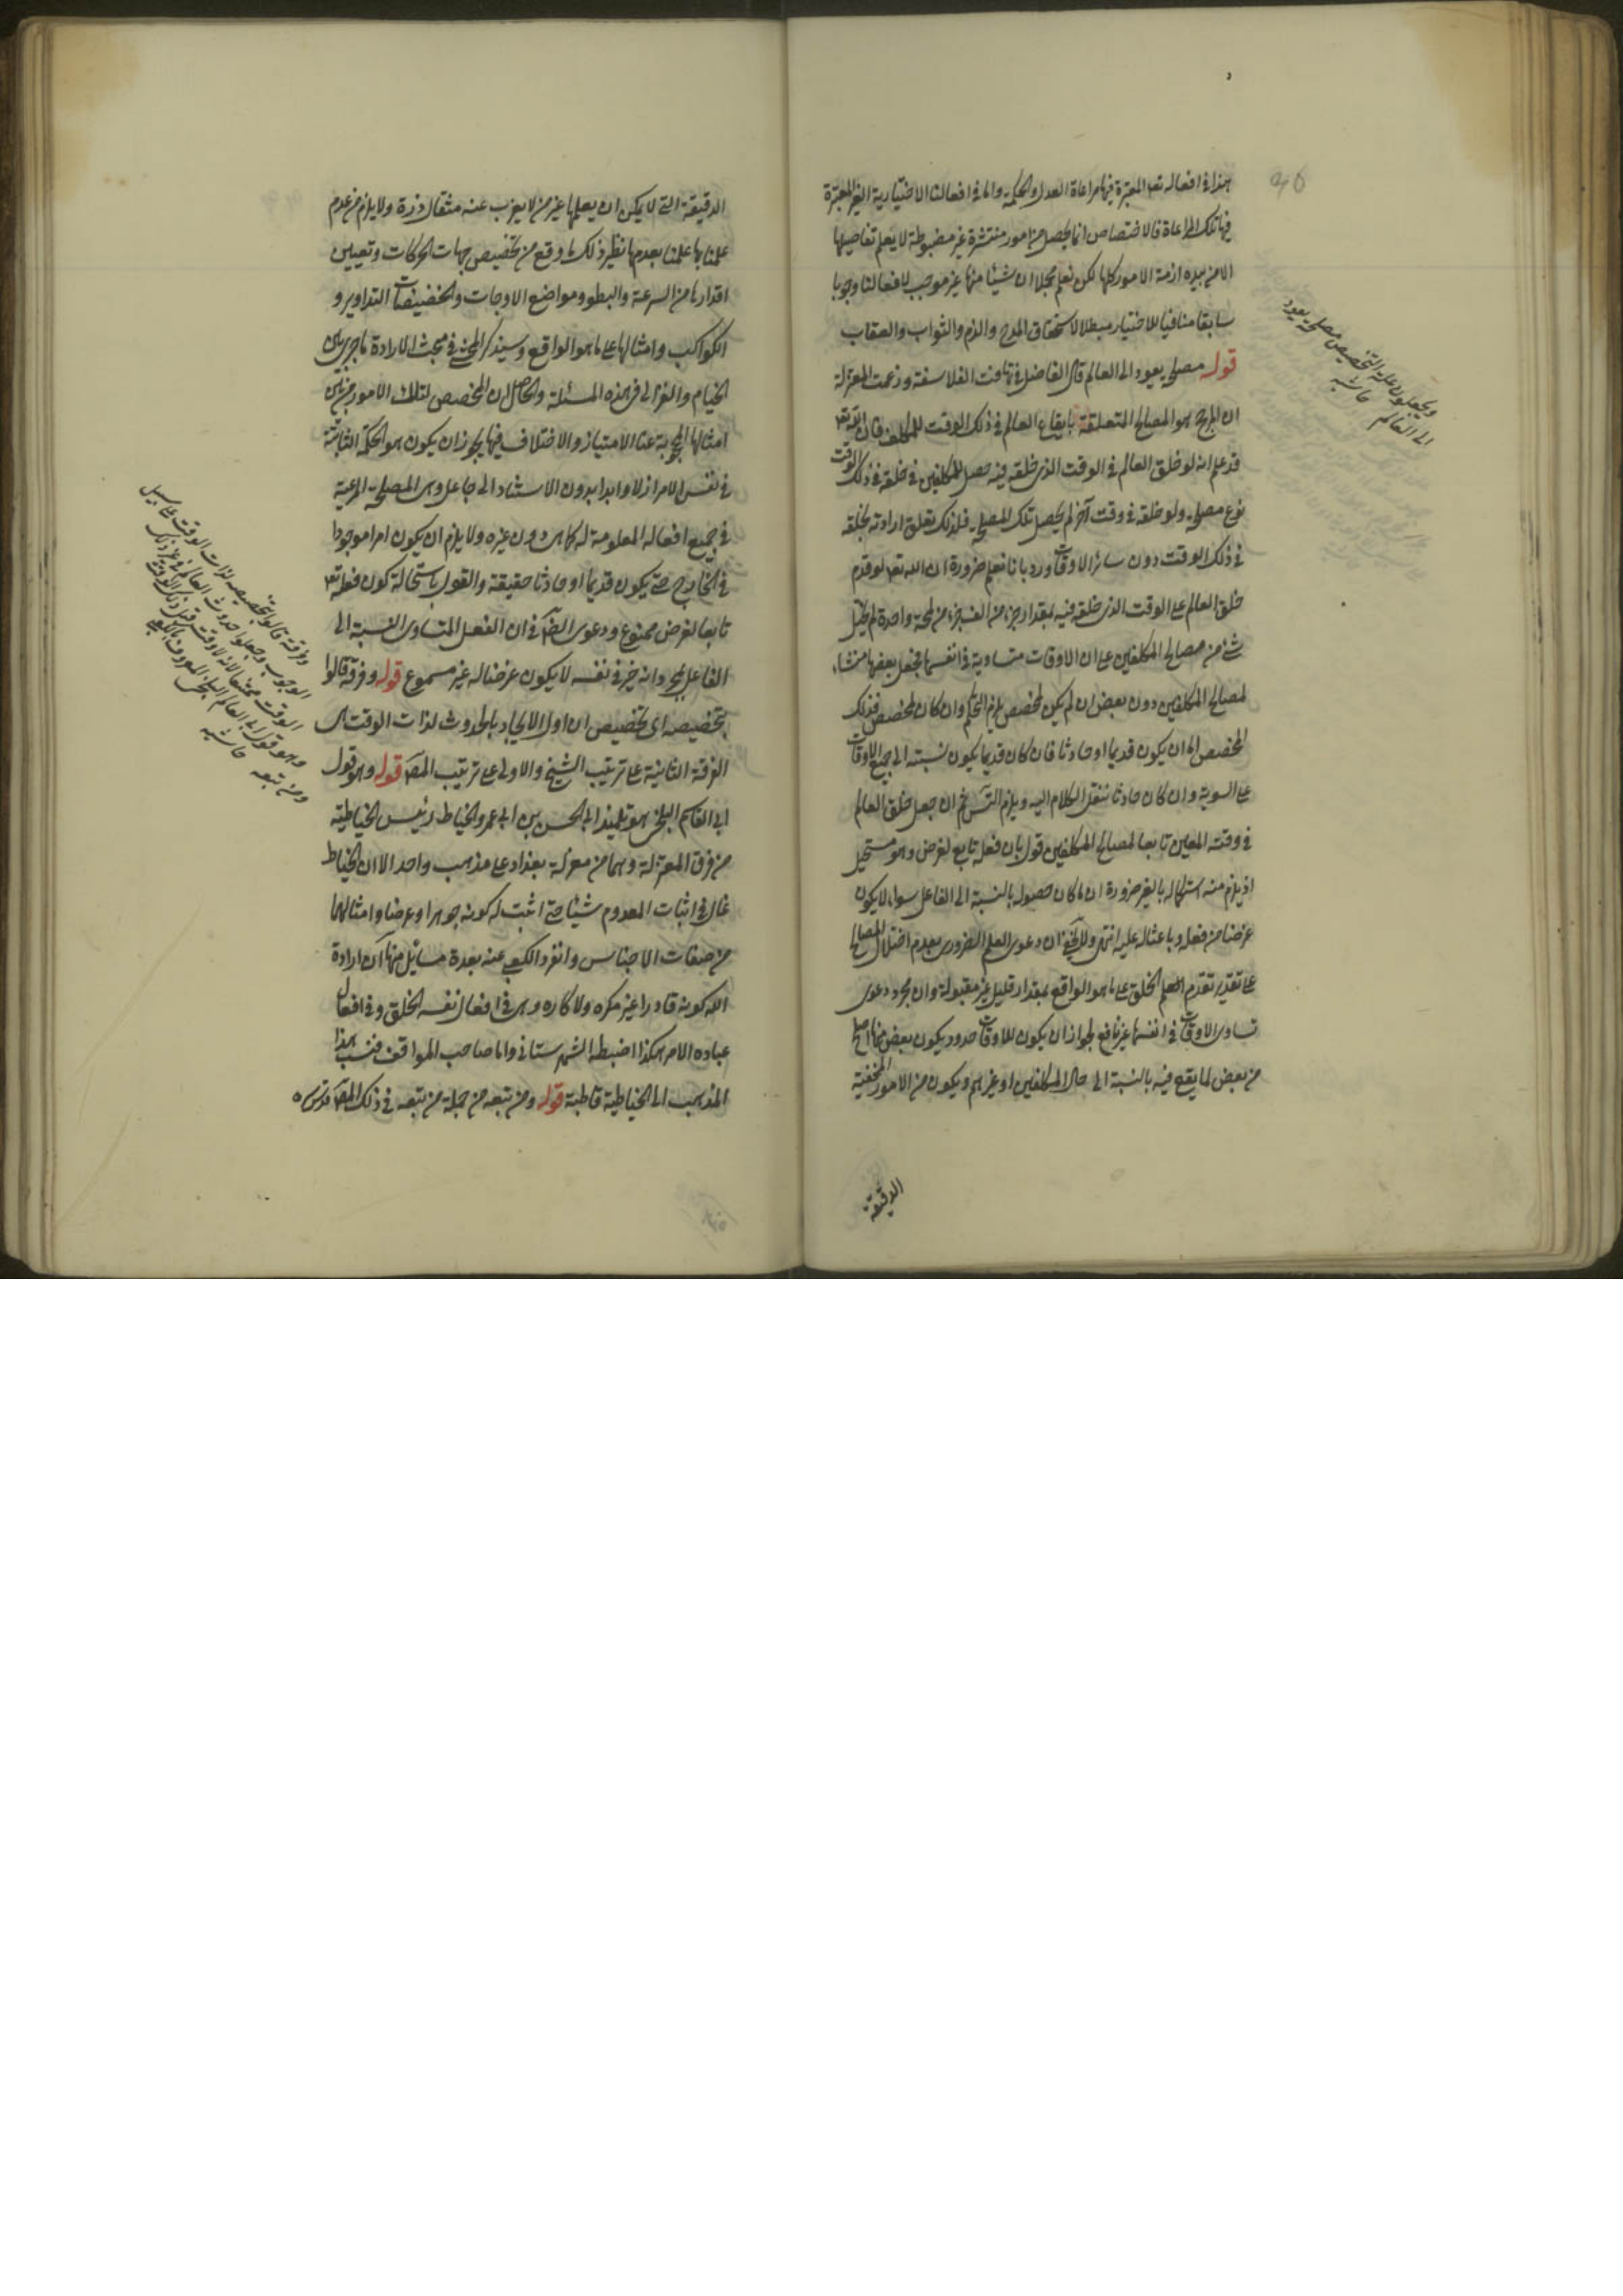 هذا في افعاله تعـ المعتبرة فيها مراعاة العدل والحكمة واما في افعالنا الاختيارية الغير المعتبرة
فيها تلك المراعاة فالاختصاص انما يحصل من امور منتشرة غير مضبوطة لا يعلم تفاصيلها
الا من بيده ازمة الامور كلها لكن نعلم مجملا ان شيئا منها غير موجب لافعالنا وجوبا
سابقا منافيا للاختيار مبطلا لاستحقاق المدح والذم والثواب والعقاب
قوله مصلحة يعود الى العالم قال الفاضل في تهافت الفلاسفة وزعمت المعتزلة
ان المرجح هو المصالح المتعلقة بايقاع العالم في ذلك الوقت للمكلف فان الله تعـ
قد علم انه لو خلق العالم في الوقت الذى خلقه فيه حصل للمكلفين في خلقه في ذلك الوقت
نوع مصلحة ولو خلقه في وقت آخر لم يحصل تلك المصلحة فلذلك تعلق ارادته بخلقه
في ذلك الوقت دون سائر الاوقات ورد بانا نعلم ضرورة ان الله تعـ لو قدم
خلق العالم على الوقت الذى خلقه فيه بمقدار جزء من الف جزء من لمحة واحدة لم يختل
شئ من مصالح المكلفين على ان الاوقات متساوية في انفسها فجعل بعضها منشاء
لمصالح المكلفين دون بعض ان لم يكن لمخصص يلزم التحكم وان كان لمخصص فذلك
المخصص اما ان يكون قديما او حادثا فان كان قديما يكون نسبته الى جميع الاوقات
على السوية وان كان حادثا ننقل الكلام اليه ويلزم التس ثم ان جعل خلق العالم
في وقته المعين تابعا لمصالح المكلفين قول بان فعله تابع لغرض وهو مستحيل
اذ يلزم منه استكماله بالغير ضرورة ان ما كان حصوله بالنسبة الى الفاعل سواء لا يكون
غرضا من فعله وباعثا له عليه انتهى ولا يخفى ان دعوى العلم الضرورى بعدم اختلال المصالح
على تقدير تقدم الخلق على ما هو الواقع بمقدار قليل غير مقبولة وان مجرد دعوى
تساوى الاوقات في انفسها غير نافع لجواز ان يكون للاوقات حدود يكون بعض منها اصلح
من بعض لما يقع فيه بالنسبة الى حال المكلفين او غيرهم ويكون من الامور الخفية
الدقيقة
ويجعلون علة التخصيص مصلحة يعود
الى العالم حاشيه
الدقيقة التى لا يمكن ان يعلمها غير من لا يعزب عنه مثقال ذرة ولا يلزم من عدم
علمنا بها علمنا بعدمها نظير ذلك ما وقع من تخصيص جهات الحركات وتعيين
اقدارها من السرعة والبطو ومواضع الاوجات والحضيضات التداوير و
الكواكب وامثالها على ما هو الواقع وسيذكر المحشى في مبحث الارادة ما جرى بين
الخيام والغزالى في هذه المسئلة والحاصل ان المخصص لتلك الامور من بين
امثالها المجوبة عنا الامتياز والاختلاف فيها يجوز ان يكون هو الحكمة الثابتة
في نفس الامر ازلا وابدا بدون الاستناد الى جاعل وهى المصلحة المرعية
في جميع افعاله المعلومة له كما هى دون غيره ولا يلزم ان يكون امرا موجودا
في الخارج حتى يكون قديما او حادثا حقيقة والقول باستحالة كون فعله تعـ
تابعا لغرض ممنوع ودعوى الضرورة في ان الفعل المتساوى النسبة الى
الفاعل بمجرد انه خير في نفسه لا يكون غرضا له غير مسموع قوله وفرقة قالوا
بتخصيصه اى تخصيص ان اول الايجاد بالحدوث لذات الوقت هى
الفرقة الثانية على ترتيب الشيخ والاولى على ترتيب المصـ قوله وهو قول
ابى القاسم البلخى هو تلميذ ابى الحسن بن ابى عمرو الخياط رئيس الخياطية
من فرق المعتزلة وهما من معتزلة بغداد على مذهب واحد الا ان الخياط
غالى في اثبات المعدوم شيئا حتى اثبت له كونه جوهرا وعرضا وامثالهما
من صفات الاجناس وانفرد الكعبى عنه بعدة مسائل منها ان ارادة
الله كونه قادرا غير مكره ولا كاره وهى في افعال نفسه الخلق وفي افعال
عباده الامر هكذا ضبطه الشهرستانى واما صاحب المواقف فنسب هذا
المذهب الى الخياطية قاطبة قوله ومن تبعه من جملة من تبعه في ذلك المصـ قدس سره
وفرقة قالوا بتخصيصه لذات الوقت على سبيل
الوجوب وجعلوا حدوث العالم في غير ذلك
الوقت ممتنعا لانه لا وقت قبل ذلك الوقت
وهو قول ابى القاسم البلخى المعروف بالكعبى
ومن تبعه حاشيه